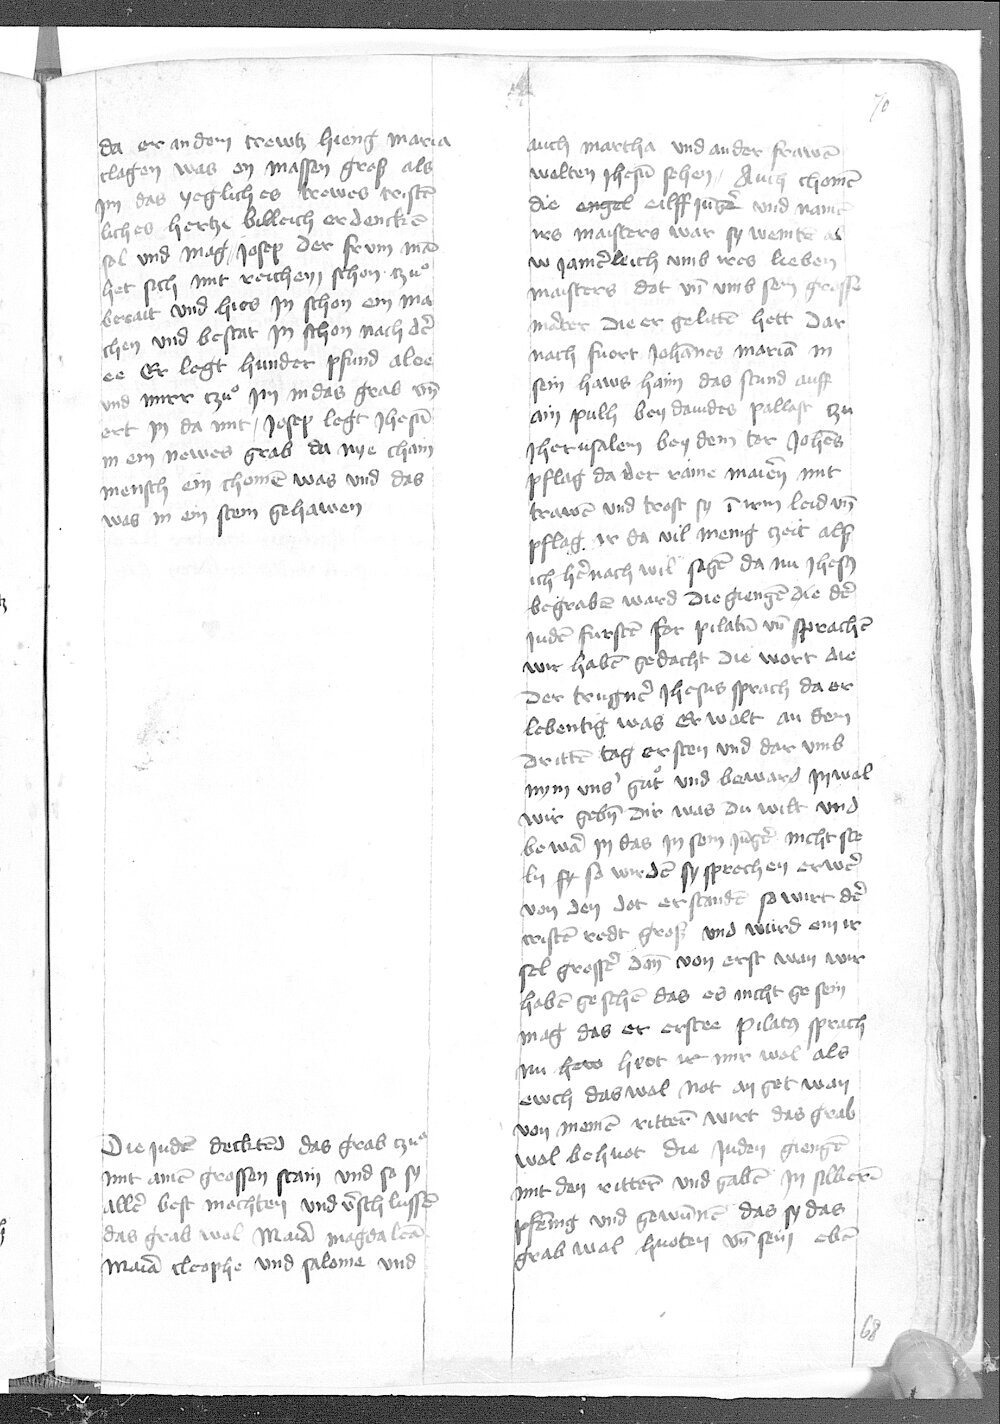 da er an dem crewtz hieng maria
clagen was on massen groß als
im das yegliches trewes cristē
liches hertze billeich erdenckē
sol und mag / Josep der frum mā
het sich mit reichem schon tzuͦ
berait und hies in schon ein ma
chen und bestat in schon nach der̄
ee Er legt hunder pfund aloe
und mirr tzuͦ im in das grab vn̄
ert in da mit / Josep legt Jhesū
in ein newes grab da nye chain
mensch ein chomē was und das
was in ein stein gehawen
Die judē decktēd das grab tzuͦ
mit ainē grossen stain und so sy
aller̄ best mochten und v̄schlussē
das grab wol Maiā magdalēa
Maiā cleophe und salome und
70
auch martha und ander frawē
wolten Jhesū sehen / Auch chomē
die engel eilff jūger̄ und namē
irs maisters war sy weinte al
w jamer̄leich umb ires lieben
maisters dot vn̄ umb sein grosse
marter die er gelitte hett Dar
nach fuort Johānes mariā in
sein haws haim das stund auff
ain puhl bey dauides pallast tzu
Jherusalem bey dem tor Johēs
pflag da der raine maiēn mit
trawē und trost sy ī irm leid vn̄
pflag ir da vil menig tzeit alß
ich her̄nach wil sagē da nu Jhesꝯ
begrabē ward Die giengē die der̄
judē furstē for pilatū vn̄ sprachē
wir habē gedacht die wort die
der trugner̄ Jhesus sprach da er
lebentig was Er wolt an dem
dritte tag ersten und dar umb
nym uns' guͦt und beward in wol
wir gebn̄ dir was du wilt und
bewar̄ in das in sein jūger̄ nicht ste
ln sy so wirdē sy sprechen er wer̄
von den dot erstandē so wirt der̄
cristē redt groß und wurd ein ir
sel grosser̄ dan̄ von erst wan wir
habē gesehē das es nicht gesein
mag das er erstee Pilatꝯ sprach
nu herr huot ir mir wol als
ewch das wol not an get wan
von meinē ritterē wirt das grab
wol behuot die juden giengē
mit den ritterē und gabē in silberē
pfenīg und gewūnē das sy das
grab wol huoten vn̄ sein ebē
68